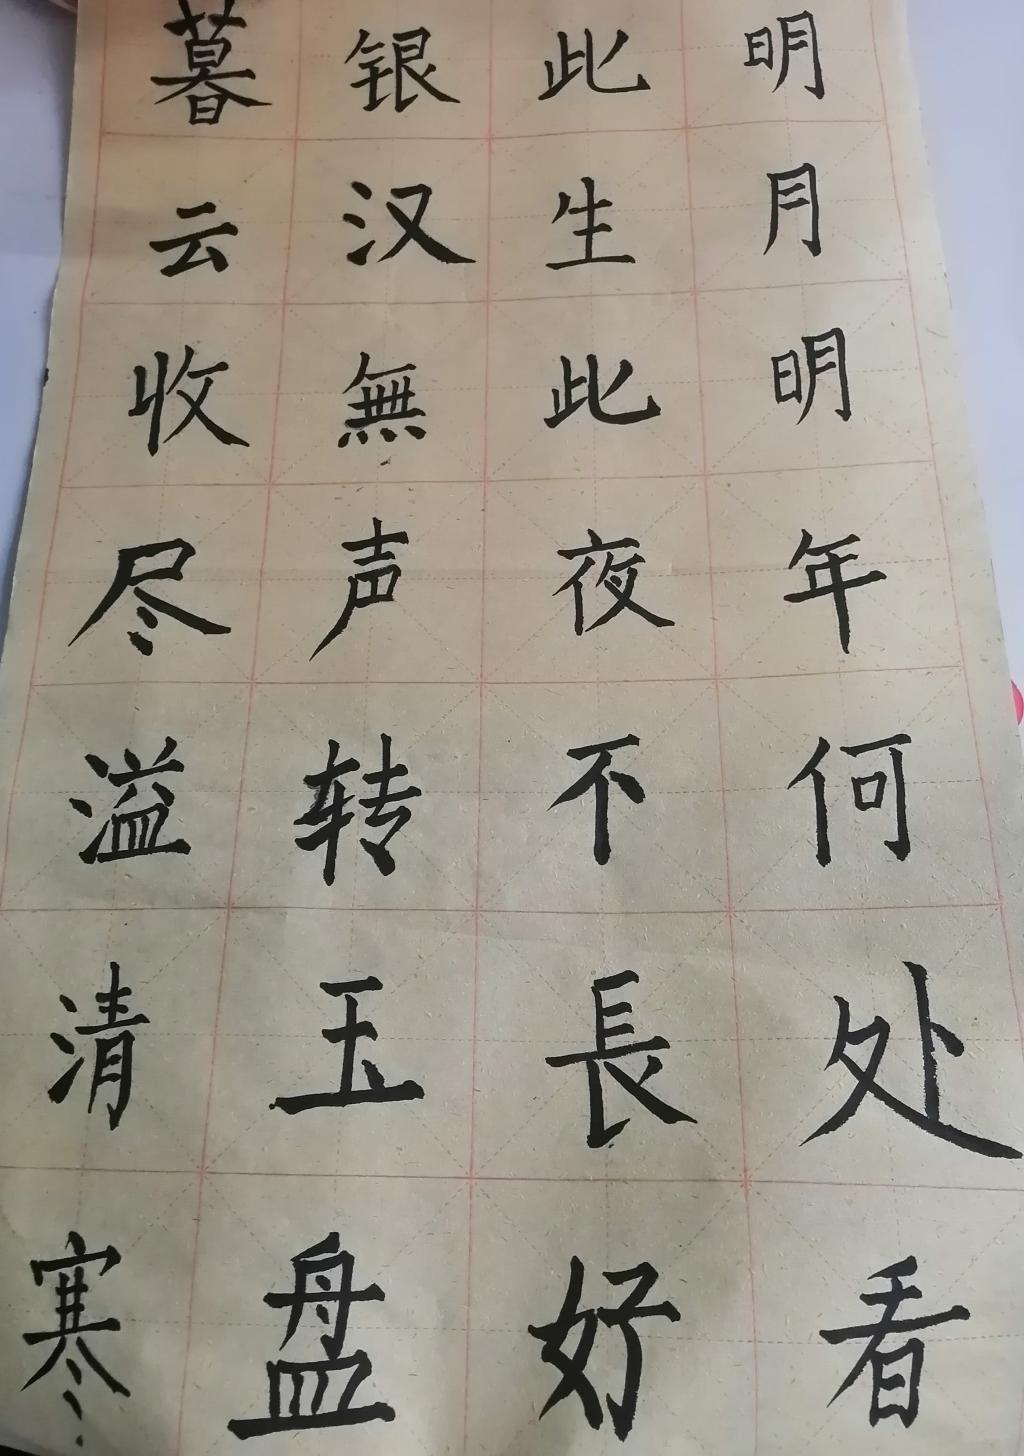 暮云收尽溢清寒
银汉無声转玉盘
此生此夜不長好
明月明年何处看